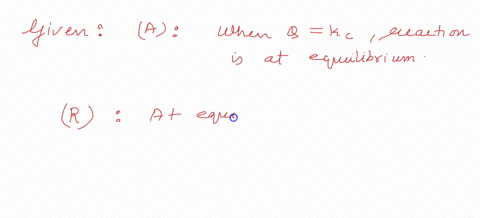 Given : (A) : When Q = Kc , reaction
is at equilibrium.
(R) : At equ